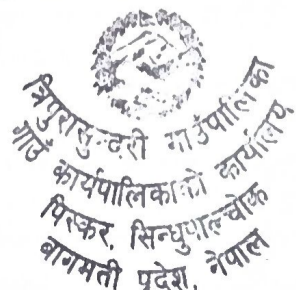 त्रिपुरासुन्दरी गाउँपालिका
गाउँ कार्यपालिकाको कार्यालय
पिस्कर, सिन्धुपाल्चोक
बागमती प्रदेश, नेपाल